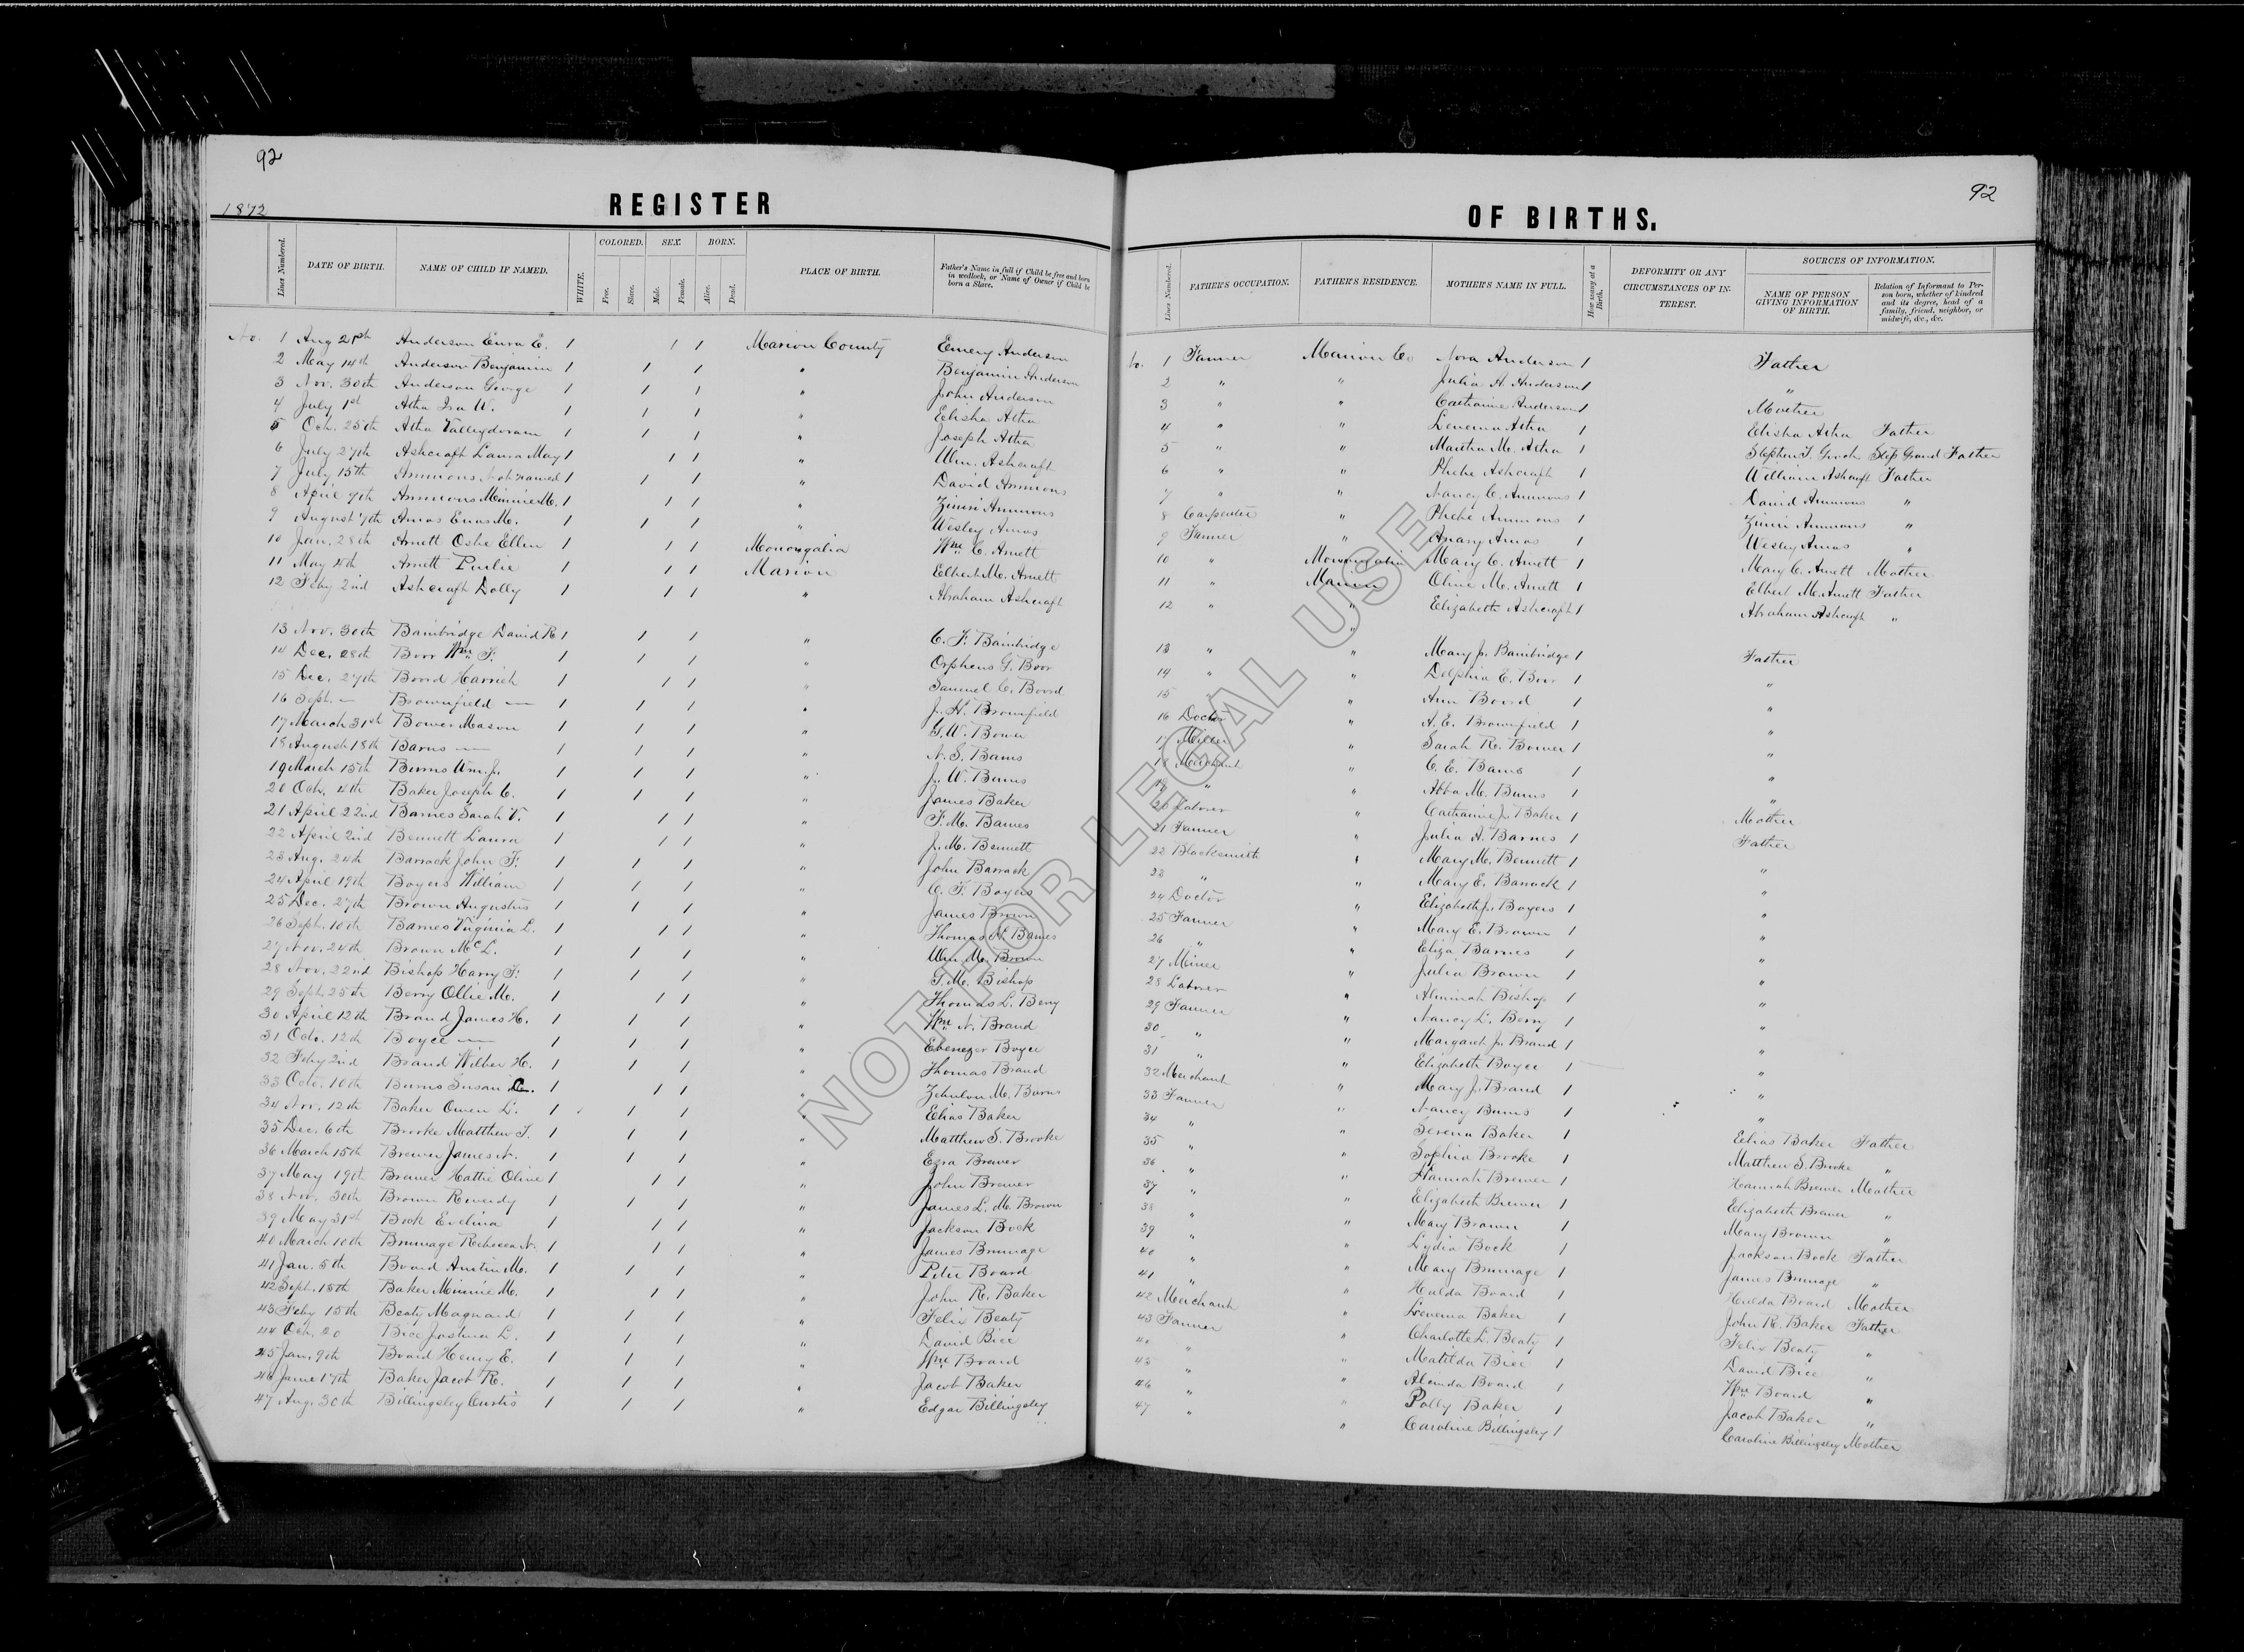 92
1872
REGISTER
Lines Numbered. DATE OF BIRTH. NAME OF CHILD IF NAMED. WHITE. COLORED. Free. Slave. SEX. Male. Female. BORN. Alive. Dead. PLACE OF BIRTH. Father's Name in full if Child be free and born in wedlock, or Name of Owner if Child be born a Slave.
No. 1 Aug 21st Anderson E. 1 1 1 Marion County Emery Anderson
2 May 14th Anderson Benjamin 1 1 1 " Benjamin Anderson
3 Nov. 30th Anderson George 1 1 1 " John Anderson
4 July 1st Atha Ira W. 1 1 1 " Elisha Atha
5 Oct. 25th Atha 1 1 1 " Joseph Atha
6 July 27th Ashcraft Laura May 1 1 1 " Wm. Ashcraft
7 July 15th Ammons Not named 1 1 1 " David Ammons
8 April 7th Ammons Minnie M. 1 1 1 " Zimri Ammons
9 August 7th Amos Enos M. 1 1 1 " Wesley Amos
10 Jan. 28th Arnett Ellen 1 1 1 Monongalia Wm C. Arnett
11 May 4th Arnett 1 1 1 Marion Elbert M. Arnett
12 Feby 2nd Ashcraft Dolly 1 1 1 " Abraham Ashcraft
13 Nov. 30th Bainbridge David R 1 1 1 " C. F. Bainbridge
14 Dec. 28th Boor Wm F. 1 1 1 " Orpheus G. Boor
15 Dec. 27th Boord 1 1 1 " Samuel C. Boord
16 Sept. — Brownfield — 1 1 1 " J. H. Brownfield
17 March 31st Bower Mason 1 1 1 " G. W. Bower
18 August 18th Barns — 1 1 1 " N. S. Barns
19 March 15th Burns Wm. J. 1 1 1 " J. W. Burns
20 Oct. 4th Baker Joseph C. 1 1 1 " James Baker
21 April 22nd Barnes Sarah V. 1 1 1 " F. M. Barnes
22 April 2nd Bennett Laura 1 1 1 " J. M. Bennett
23 Aug. 24th Barrack John F. 1 1 1 " John Barrack
24 April 19th Boyers William 1 1 1 " C. F. Boyers
25 Dec. 27th Brown Augustus 1 1 1 " James Brown
26 Sept. 10th Barnes Virginia L. 1 1 1 " Thomas N. Barnes
27 Nov. 24th Brown McL. 1 1 1 " Wm M. Brown
28 Nov. 22nd Bishop Harry F. 1 1 1 " G. M. Bishop
29 Sept. 25th Berry Ollie M. 1 1 1 " Thomas L. Berry
30 April 12th Brand James H. 1 1 1 " Wm N. Brand
31 Octo. 12th Boyce — 1 1 1 " Ebenezer Boyce
32 Feby 2nd Brand Wilber H. 1 1 1 " Thomas Brand
33 Octo. 10th Burns Susan 1 1 1 " Zebulon M. Burns
34 Nov. 12th Baker Owen L. 1 1 1 " Elias Baker
35 Dec. 6th Brooke Matthew T. 1 1 1 " Matthew S. Brooke
36 March 15th Brewer James N. 1 1 1 " Ezra Brewer
37 May 19th Brewer Hattie Olive 1 1 1 " John Brewer
38 Nov. 30th Brown Reverdy 1 1 1 " James L. M. Brown
39 May 31st Bock Evelina 1 1 1 " Jackson Bock
40 March 10th Brumage Rebecca N. 1 1 1 " James Brumage
41 Jan. 5th Board Austin M. 1 1 1 " Peter Board
42 Sept. 15th Baker Minnie M. 1 1 1 " John R. Baker
43 Feby 15th Beaty Magnard 1 1 1 " Felix Beaty
44 Oct. 20 Bice Joshua L. 1 1 1 " David Bice
45 Jan. 9th Board Henry E. 1 1 1 " Wm Board
46 June 17th Baker Jacob R. 1 1 1 " Jacob Baker
47 Aug. 30th Billingsley Curtis 1 1 1 " Edgar Billingsley
92
OF BIRTHS.
Lines Numbered. FATHER'S OCCUPATION. FATHER'S RESIDENCE. MOTHER'S NAME IN FULL. How many at a Birth. DEFORMITY OR ANY CIRCUMSTANCES OF INTEREST. SOURCES OF INFORMATION. NAME OF PERSON GIVING INFORMATION OF BIRTH. Relation of Informant to Person born, whether of kindred and its degree, head of a family, friend, neighbor, or midwife, &c., &c.
No. 1 Farmer Marion Co Nora Anderson 1 Father
2 " " Julia A. Anderson 1 "
3 " " Catharine Anderson 1 Mother
4 " " Levema Atha 1 Elisha Atha Father
5 " " Martha M. Atha 1 Stephen T. Step Grand Father
6 " " Phebe Ashcraft 1 William Ashcraft Father
7 " " Nancy C. Ammons 1 David Ammons "
8 Carpenter " Phebe Ammons 1 Zimri Ammons "
9 Farmer " Anary Amos 1 Wesley Amos "
10 " Monongalia Mary C. Arnett 1 Mary C. Arnett Mother
11 " Marion Olive M. Arnett 1 Elbert M. Arnett Father
12 " " Elizabeth Ashcraft 1 Abraham Ashcraft "
13 " " Mary J. Bainbridge 1 Father
14 " " Delphia E. Boor 1 "
15 " Ann Boord 1 "
16 Doctor " A. E. Brownfield 1 "
17 Miller " Sarah R. Bower 1 "
18 Merchant " C. E. Barns 1 "
19 " " Abba M. Burns 1 "
20 Laborer " Catharine J. Baker 1 Mother
21 Farmer " Julia A. Barnes 1 Father
22 Blacksmith " Mary M. Bennett 1 "
23 " " Mary E. Barrack 1 "
24 Doctor " Elizabeth J. Boyers 1 "
25 Farmer " Mary E. Brown 1 "
26 " " Eliza Barnes 1 "
27 Miner " Julia Brown 1 "
28 Laborer " Bishop 1 "
29 Farmer " Nancy L. Berry 1 "
30 " " Margaret J. Brand 1 "
31 " " Elizabeth Boyce 1 "
32 Merchant " Mary J. Brand 1 "
33 Farmer " Nancy Burns 1 "
34 " " Serena Baker 1 Elias Baker Father
35 " " Sophia Brooke 1 Matthew S. Brooke "
36 " " Hannah Brewer 1 Hannah Brewer Mother
37 " " Elizabeth Brewer 1 Elizabeth Brewer "
38 " " Mary Brown 1 Mary Brown "
39 " " Lydia Bock 1 Jackson Bock Father
40 " " Mary Brumage 1 James Brumage "
41 " " Hulda Board 1 Hulda Board Mother
42 Merchant " Levema Baker 1 John R. Baker Father
43 Farmer " Charlotte L. Beaty 1 Felix Beaty "
44 " " Matilda Bice 1 David Bice "
45 " " Board 1 Wm Board "
46 " " Polly Baker 1 Jacob Baker "
47 " " Caroline Billingsley 1 Caroline Billingsley Mother
NOT FOR LEGAL USE